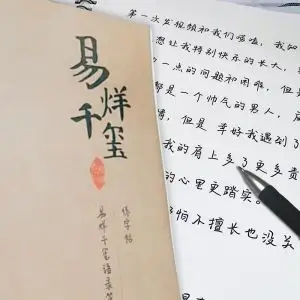 易烊千玺
练字帖
易烊千玺语录
第一次发视频和我们唠嗑，我
想让我特别快乐的长大，
一点的问题和困难，但是
是一个帅气的男人，
情，但是 幸好我遇到了
我的肩上多了更多责
的心里更踏实。
怕不擅长也没关